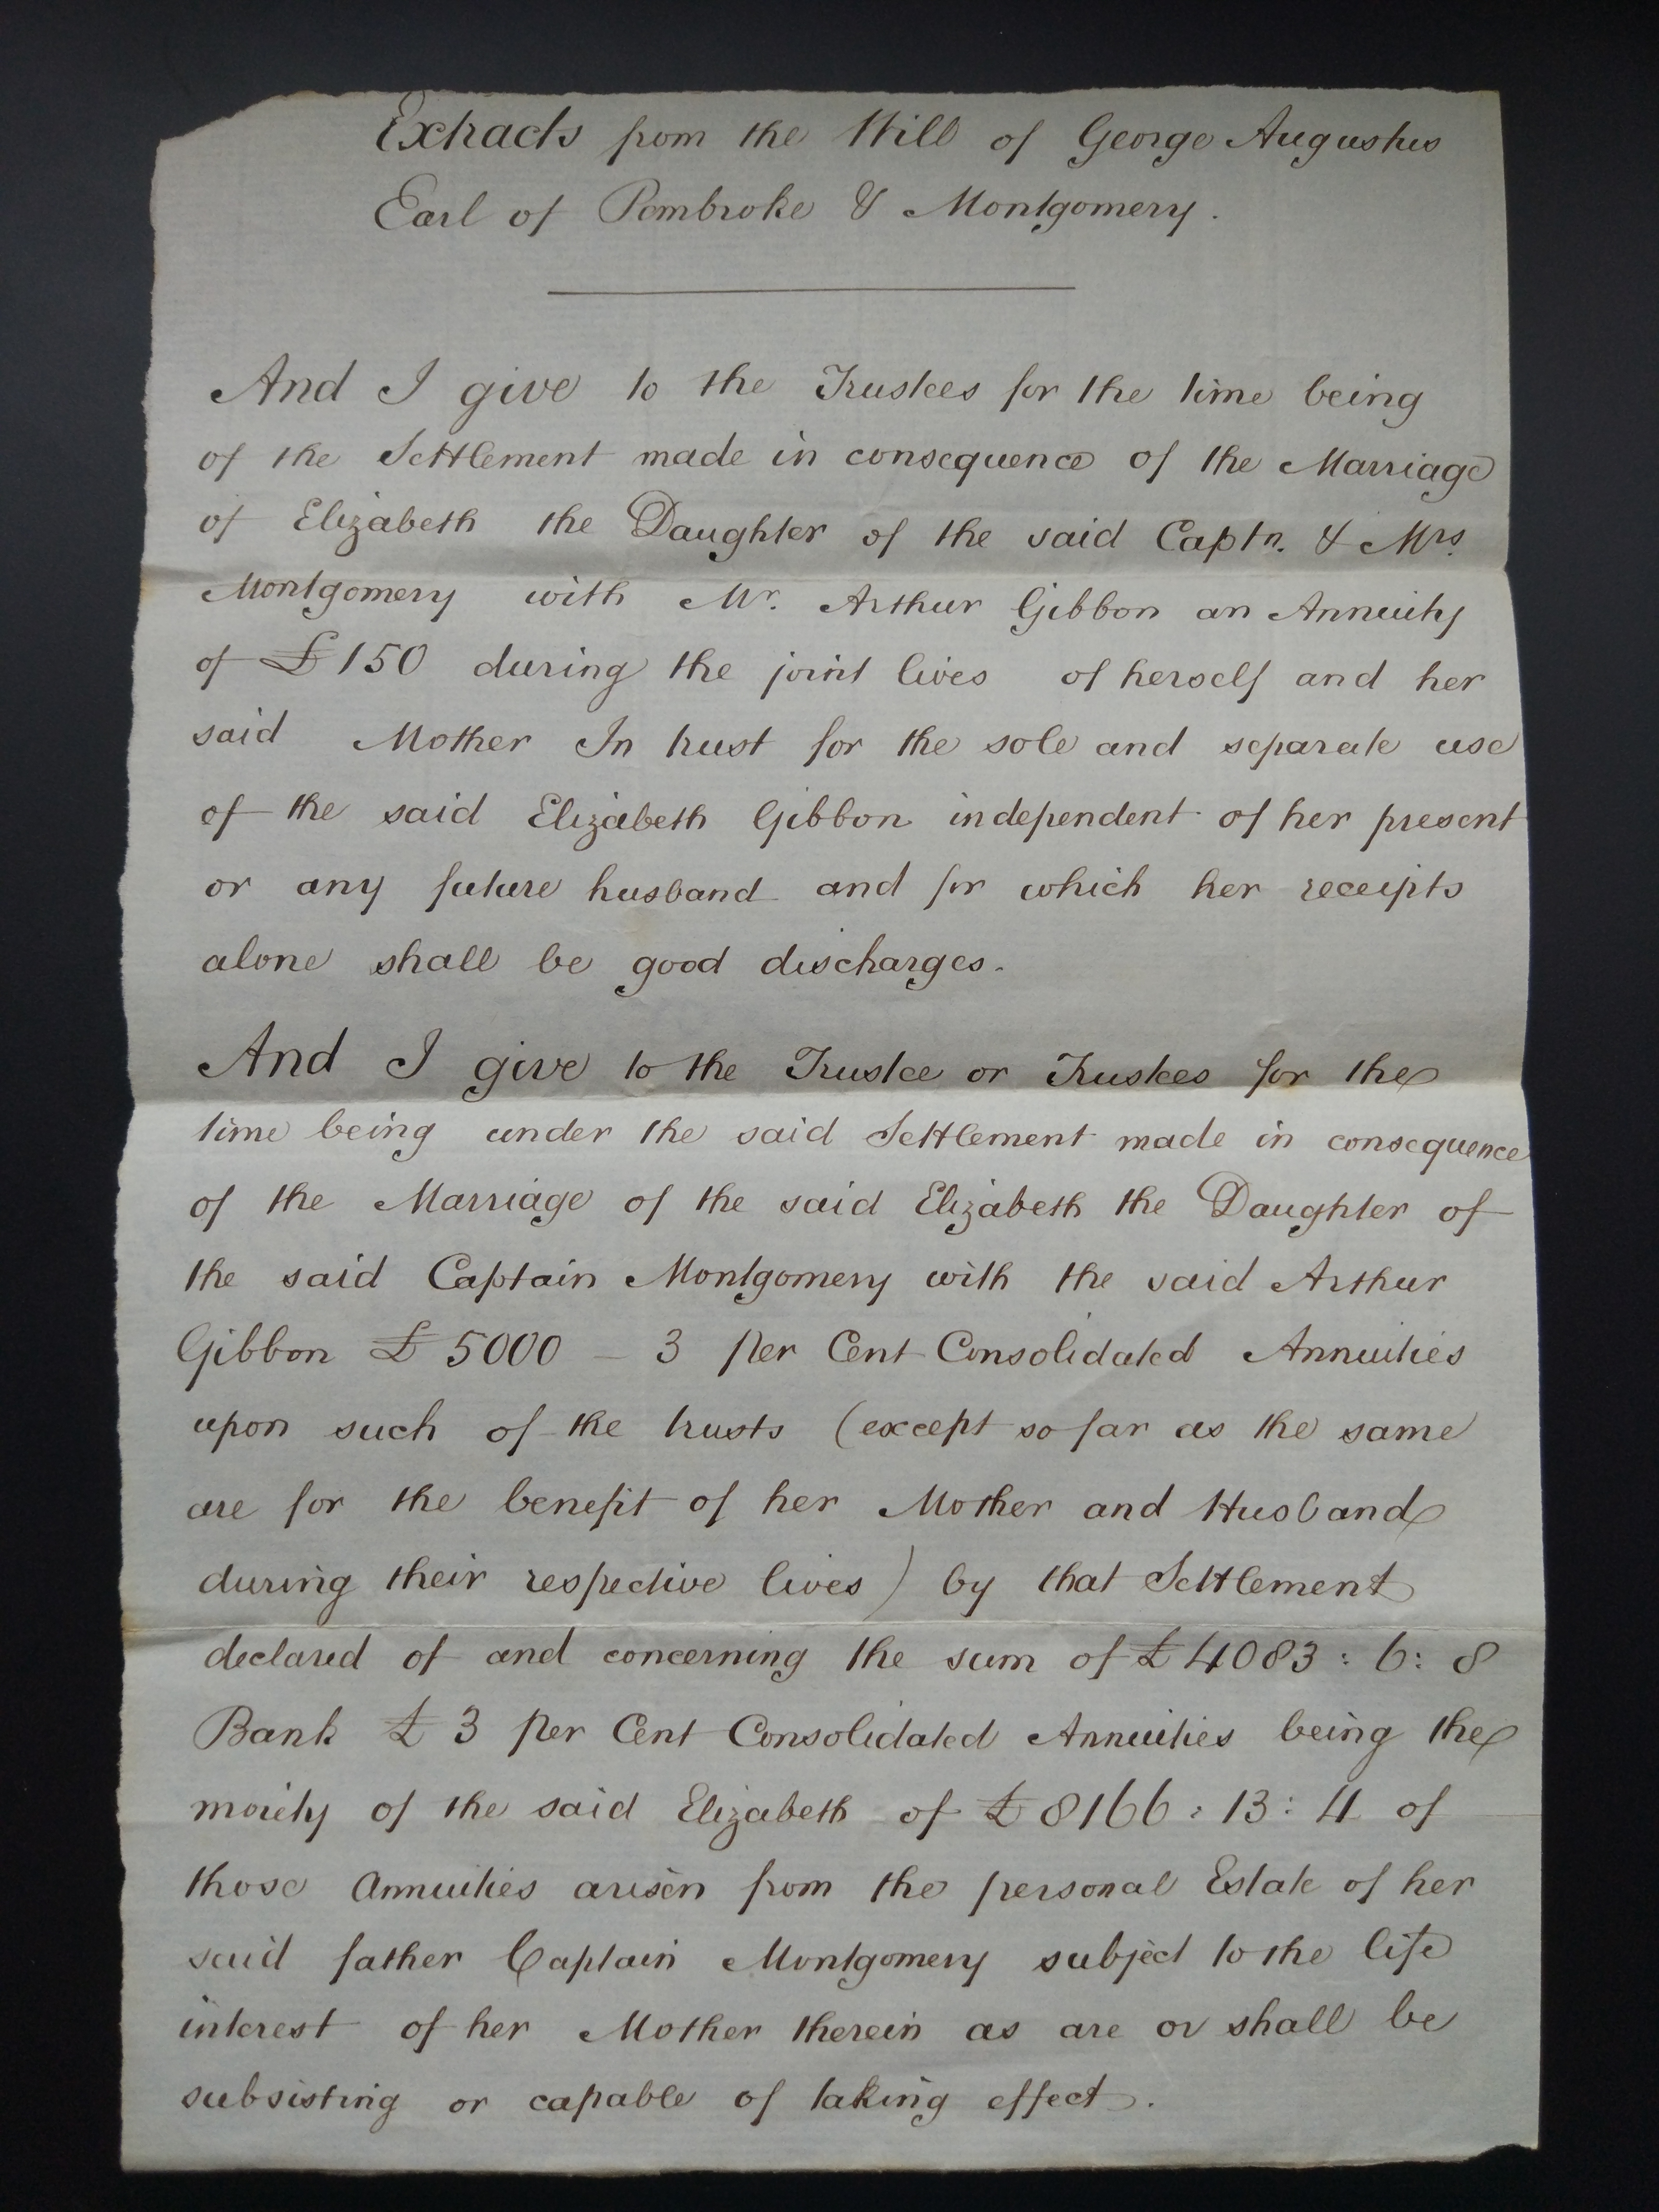 Extracts from the Will of George Augustus
Earl of Pembroke & Montgomery.
And I give to the Trustees for the time being
of the Settlement made in consequence of the Marriage
of Elizabeth the Daughter of the said Captn. & Mrs.
Montgomery with Mr. Arthur Gibbon an Annuity
of £150 during the joint lives of herself and her
said Mother In trust for the sole and separate use
of the said Elizabeth Gibbon independent of her present
or any future husband and for which her receipts
alone shall be good discharges.
And I give to the Trustee or Trustees for the
time being under the said Settlement made in consequence
of the Marriage of the said Elizabeth the Daughter of
the said Captain Montgomery with the said Arthur
Gibbon £5000 - 3 per Cent Consolidated Annuities
upon such of the trusts (except so far as the same
are for the benefit of her Mother and Husband
during their respective lives) by that Settlement
declared of and concerning the sum of £4083:6:8
Bank £3 per Cent Consolidated Annuities being the
moiety of the said Elizabeth of £8166:13:4 of
those Annuities arisen from the personal Estate of her
said father Captain Montgomery subject to the life
interest of her Mother therein as are or shall be
subsisting or capable of taking effect.